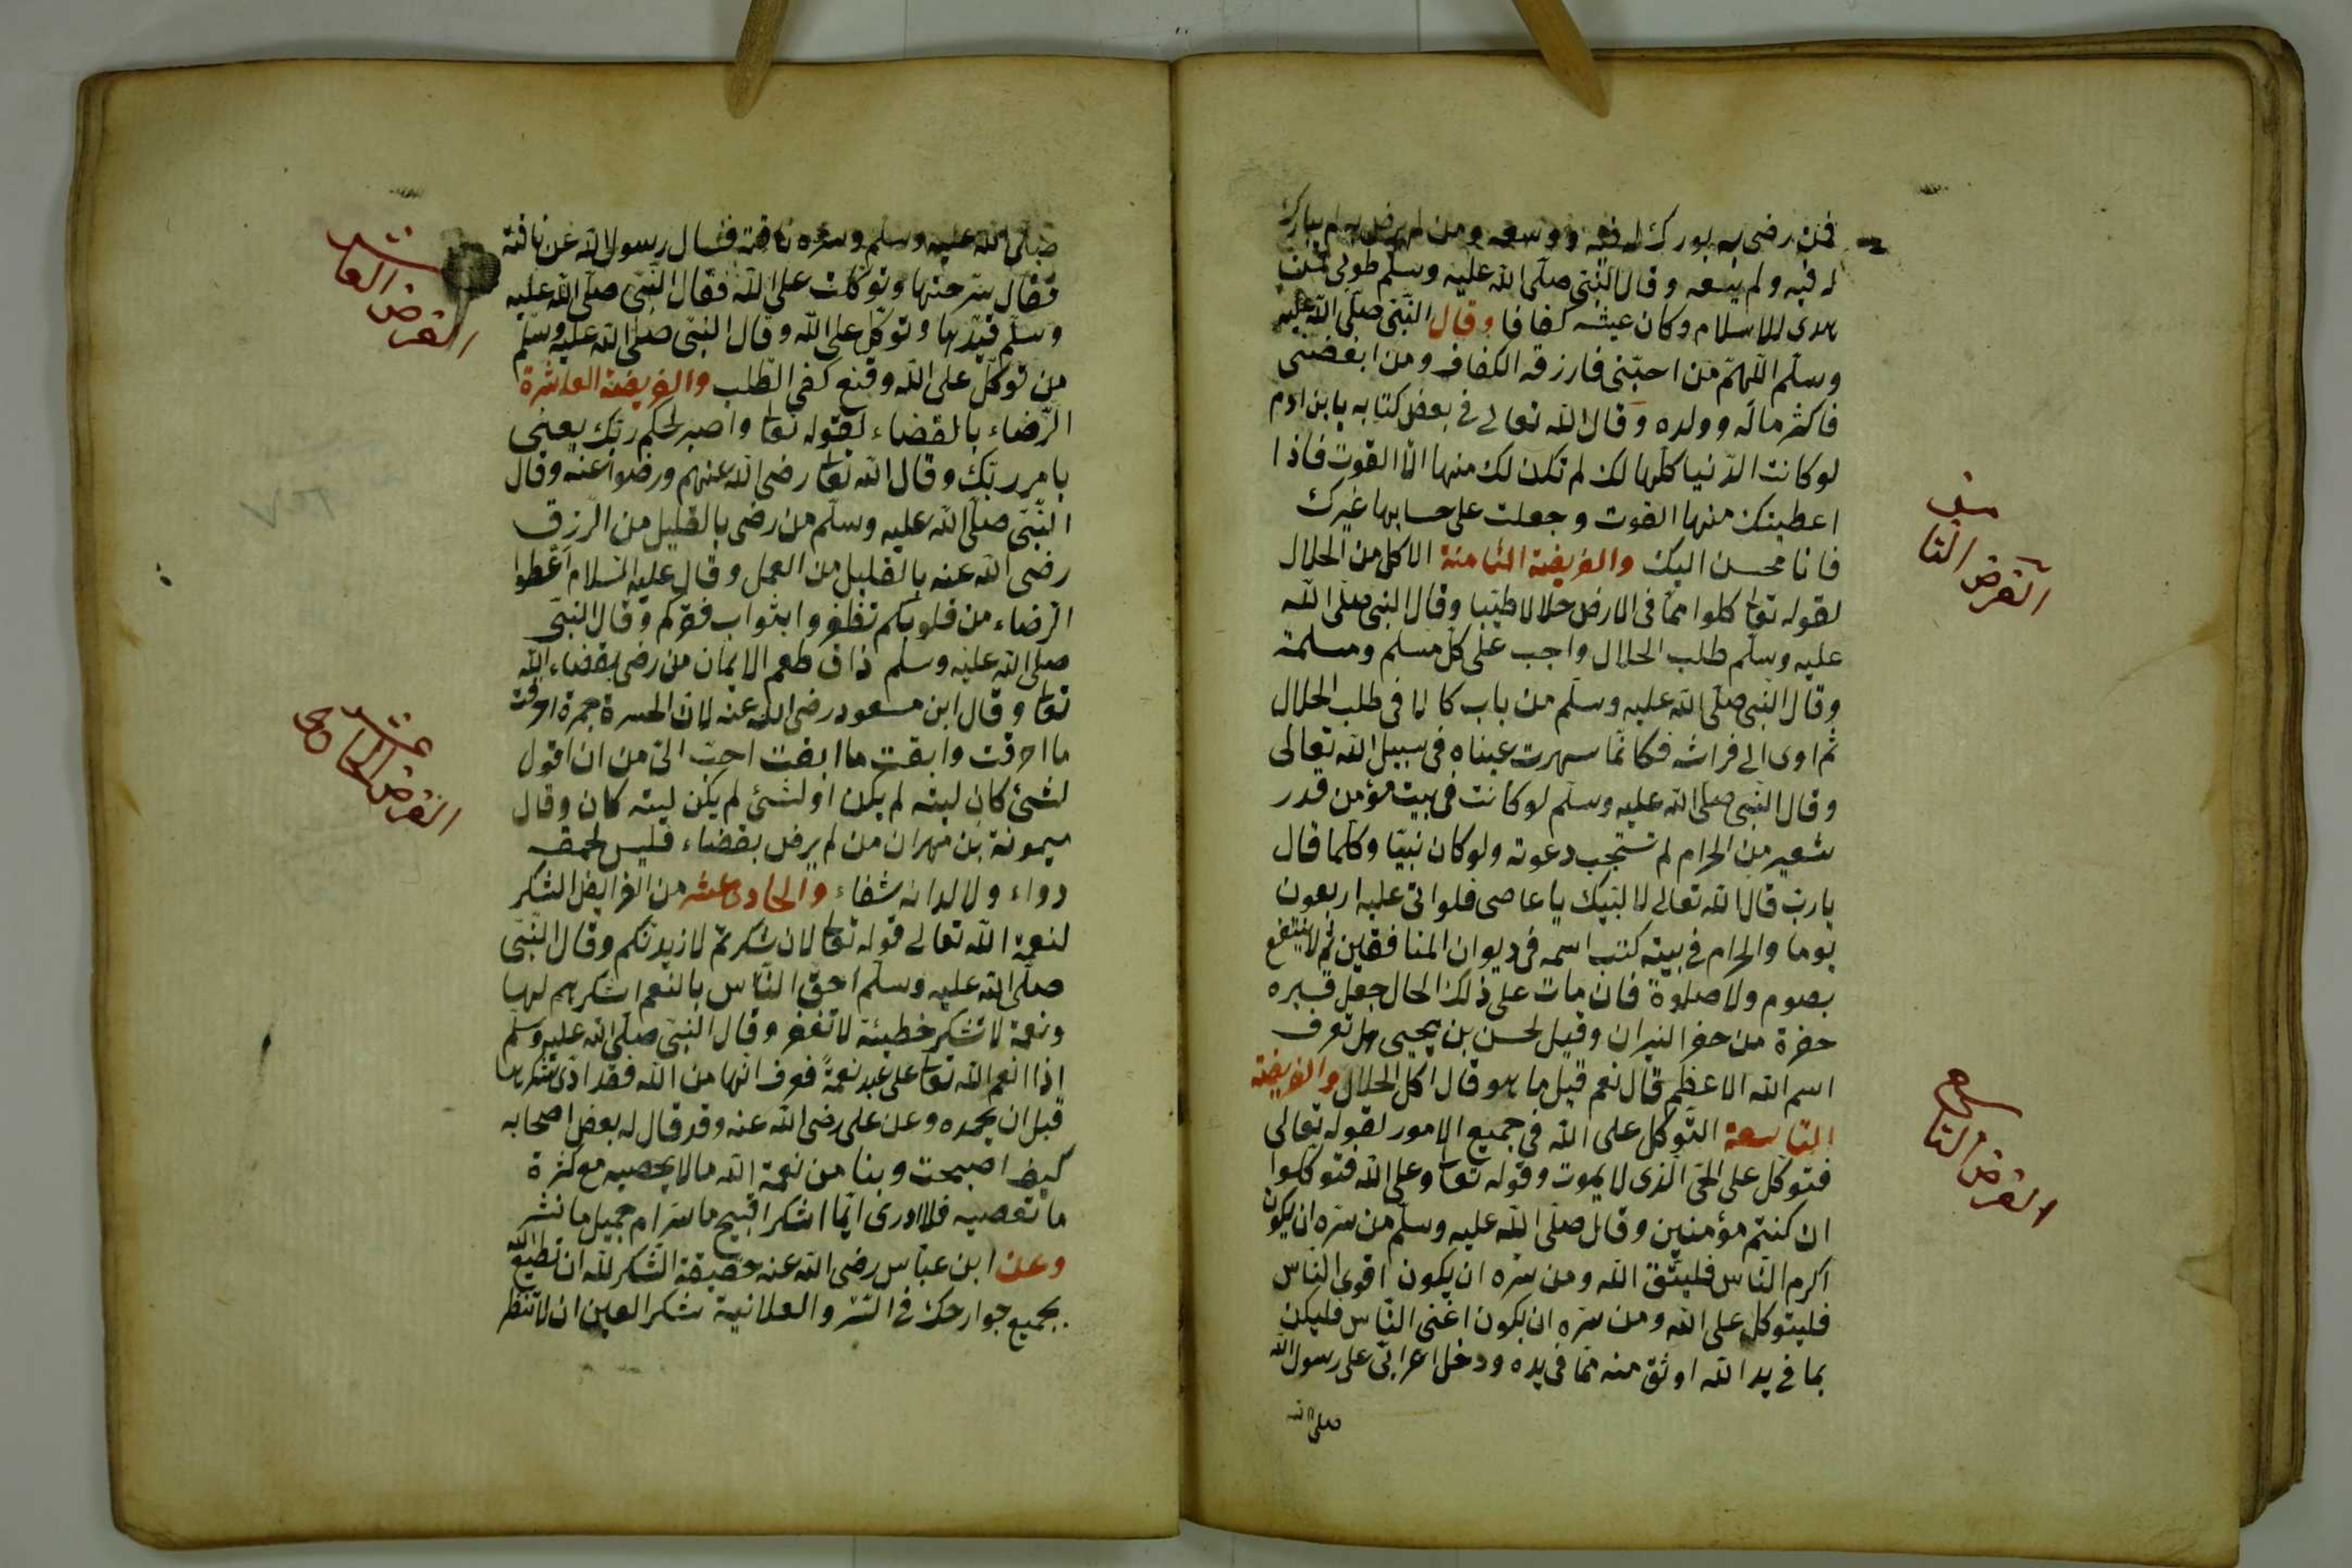 فمن رضى به بورك له فيه ووسعه ومن لم يرض به لم يبارك
له فيه ولم يسعه وقال النبى صلى الله عليه وسلم طوبى لمن
هدى للاسلام وكان عيشه كفافا وقال النبى صلى الله عليه
وسلم اللهم من احبنى فارزقه الكفاف ومن ابغضنى
فاكثر ماله وولده وقال الله تعالى فى بعض كتابه يا بن ادم
لو كانت الدنيا كلها لك لم تكن لك منها الا القوت فاذا
اعطيتك منها القوت وجعلت على حسابها غيرك
فانا محسن اليك والفريضة الثامنة الاكل من الحلال
الفرض الثامن
لقوله تعا كلوا مما فى الارض حلالا طيبا وقال النبى صلى الله
عليه وسلم طلب الحلال واجب على كل مسلم ومسلمة
وقال النبى صلى الله عليه وسلم من بات كالا فى طلب الحلال
ثم اوى الى فراشه فكانما سهرت عيناه فى سبيل الله تعالى
وقال النبى صلى الله عليه وسلم لو كانت فى بيت مؤمن قدر
شعير من الحرام لم تستجب دعوته ولو كان نبيا وكلما قال
يا رب قال الله تعالى لا لبيك يا عاصى فلو اتى عليه اربعون
يوما والحرام فى بيته كتب اسمه فى ديوان المنافقين ثم لا ينتفع
بصوم ولا صلوة فان مات على ذلك الحال جعل قبره
حفرة من حفر النيران وقيل لحسن بن يحيى هل تعرف
اسم الله الاعظم قال نعم قيل ما هو قال اكل الحلال والفريضة
التاسعة التوكل على الله فى جميع الامور لقوله تعالى
الفرض التاسع
فتوكل على الحى الذى لا يموت وقوله تعا وعلى الله فتوكلوا
ان كنتم مؤمنين وقال صلى الله عليه وسلم من سره ان يكون
اكرم الناس فليتق الله ومن سره ان يكون اقوى الناس
فليتوكل على الله ومن سره ان يكون اغنى الناس فليكن
بما فى يد الله اوثق منه مما فى يده ودخل اعرابى على رسول الله
صلى الله
صلى الله عليه وسلم وسره ناقته فسال رسول الله عن ناقته
فقال سرحتها وتوكلت على الله فقال النبى صلى الله عليه
وسلم قيدها وتوكل على الله وقال النبى صلى الله عليه وسلم
من توكل على الله وقنع كفى الطلب والفريضة العاشرة
الفرض العاشر
الرضاء بالقضاء لقوله تعا واصبر لحكم ربك يعنى
بامر ربك وقال الله تعا رضى الله عنهم ورضوا عنه وقال
النبى صلى الله عليه وسلم من رضى بالقليل من الرزق
رضى الله عنه بالقليل من العمل وقال عليه السلام اعطوا
الرضاء من قلوبكم تظفروا بثواب فقركم وقال النبى
صلى الله عليه وسلم ذاق طعم الايمان من رضى بقضاء الله
تعا وقال ابن مسعود رضى الله عنه لان الحسرة جمرة احرقت
ما احرقت وابقت ما ابقت احب الى من ان اقول
لشئ كان ليته لم يكن او لشئ لم يكن ليته كان وقال
ميمونة بن مهران من لم يرض بقضاء فليس لحمقه
دواء ولا لدائه شفاء والحادى عشر من الفرايض الشكر
الفرض الحادى عشر
لنعمة الله تعالى قوله تعا لان شكرتم لازيدنكم وقال النبى
صلى الله عليه وسلم احق الناس بالنعم اشكرهم لها
ونعمة لا تشكر خطيئة لا تغفر وقال النبى صلى الله عليه وسلم
اذا انعم الله تعا على عبد نعمة فعرف انها من الله فقد ادى شكرها
قبل ان يحمده وعن على رضى الله عنه وقد قال له بعض اصحابه
كيف اصبحت وبنا من نعمة الله ما لا يحصيه مع كثرة
ما نعصيه فلا ادرى ايما اشكر اقبيح ما ستر ام جميل ما نشر
وعن ابن عباس رضى الله عنه حقيقة الشكر لله ان تطيع الله
بجميع جوارحك فى السر والعلانية شكر العين ان لا تنظر